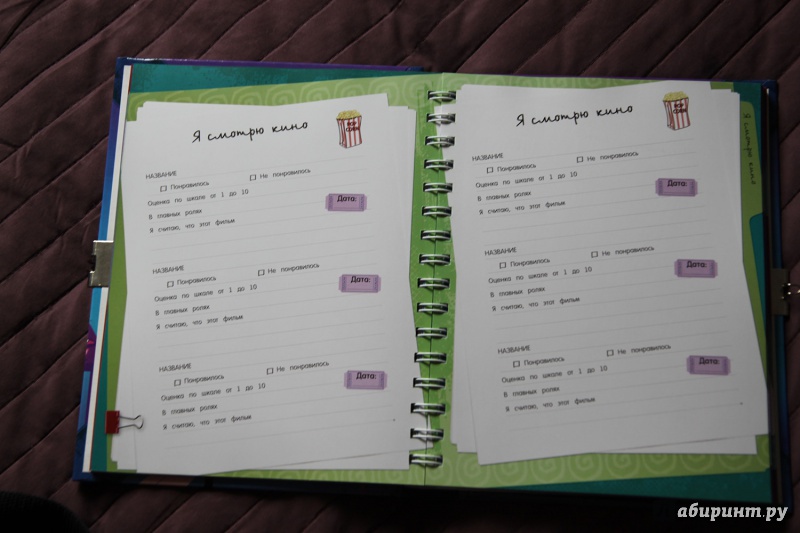 Я смотрю кино
POP CORN
НАЗВАНИЕ
Понравилось Не понравилось
Оценка по шкале от 1 до 10
В главных ролях
Дата:
Я считаю, что этот фильм
НАЗВАНИЕ
Понравилось Не понравилось
Оценка по шкале от 1 до 10
В главных ролях
Дата:
Я считаю, что этот фильм
НАЗВАНИЕ
Понравилось Не понравилось
Оценка по шкале от 1 до 10
В главных ролях
Дата:
Я считаю, что этот фильм
Я смотрю кино
POP CORN
НАЗВАНИЕ
Понравилось Не понравилось
Оценка по шкале от 1 до 10
В главных ролях
Дата:
Я считаю, что этот фильм
НАЗВАНИЕ
Понравилось Не понравилось
Оценка по шкале от 1 до 10
В главных ролях
Дата:
Я считаю, что этот фильм
НАЗВАНИЕ
Понравилось Не понравилось
Оценка по шкале от 1 до 10
В главных ролях
Дата:
Я считаю, что этот фильм
Я смотрю кино
абиринт.ру